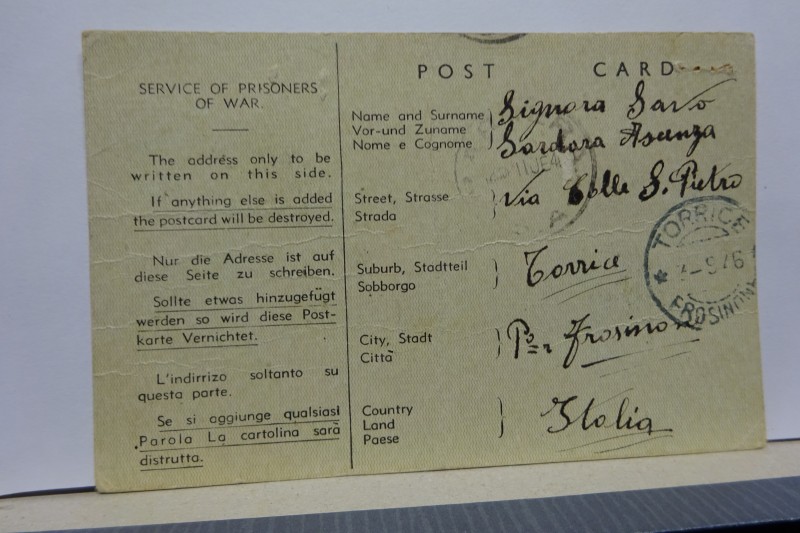 POST CARD
SERVICE OF PRISONERS
OF WAR.
The address only to be
written on this side.
If anything else is added
the postcard will be destroyed.
Nur die Adresse ist auf
diese Seite zu schreiben.
Sollte etwas hinzugefügt
werden so wird diese Post-
karte Vernichtet.
L'indirrizo soltanto su
questa parte.
Se si aggiunge qualsiasi
Parola La cartolina sarà
distrutta.
Name and Surname
Vor-und Zuname
Nome e Cognome
Signora Savo
Sardara Asenza
Street, Strasse
Strada
Via Colle S. Pietro
Suburb, Stadtteil
Sobborgo
Torrice
City, Stadt
Città
Frosinone
Country
Land
Paese
Italia
TORRICE
FROSINONE